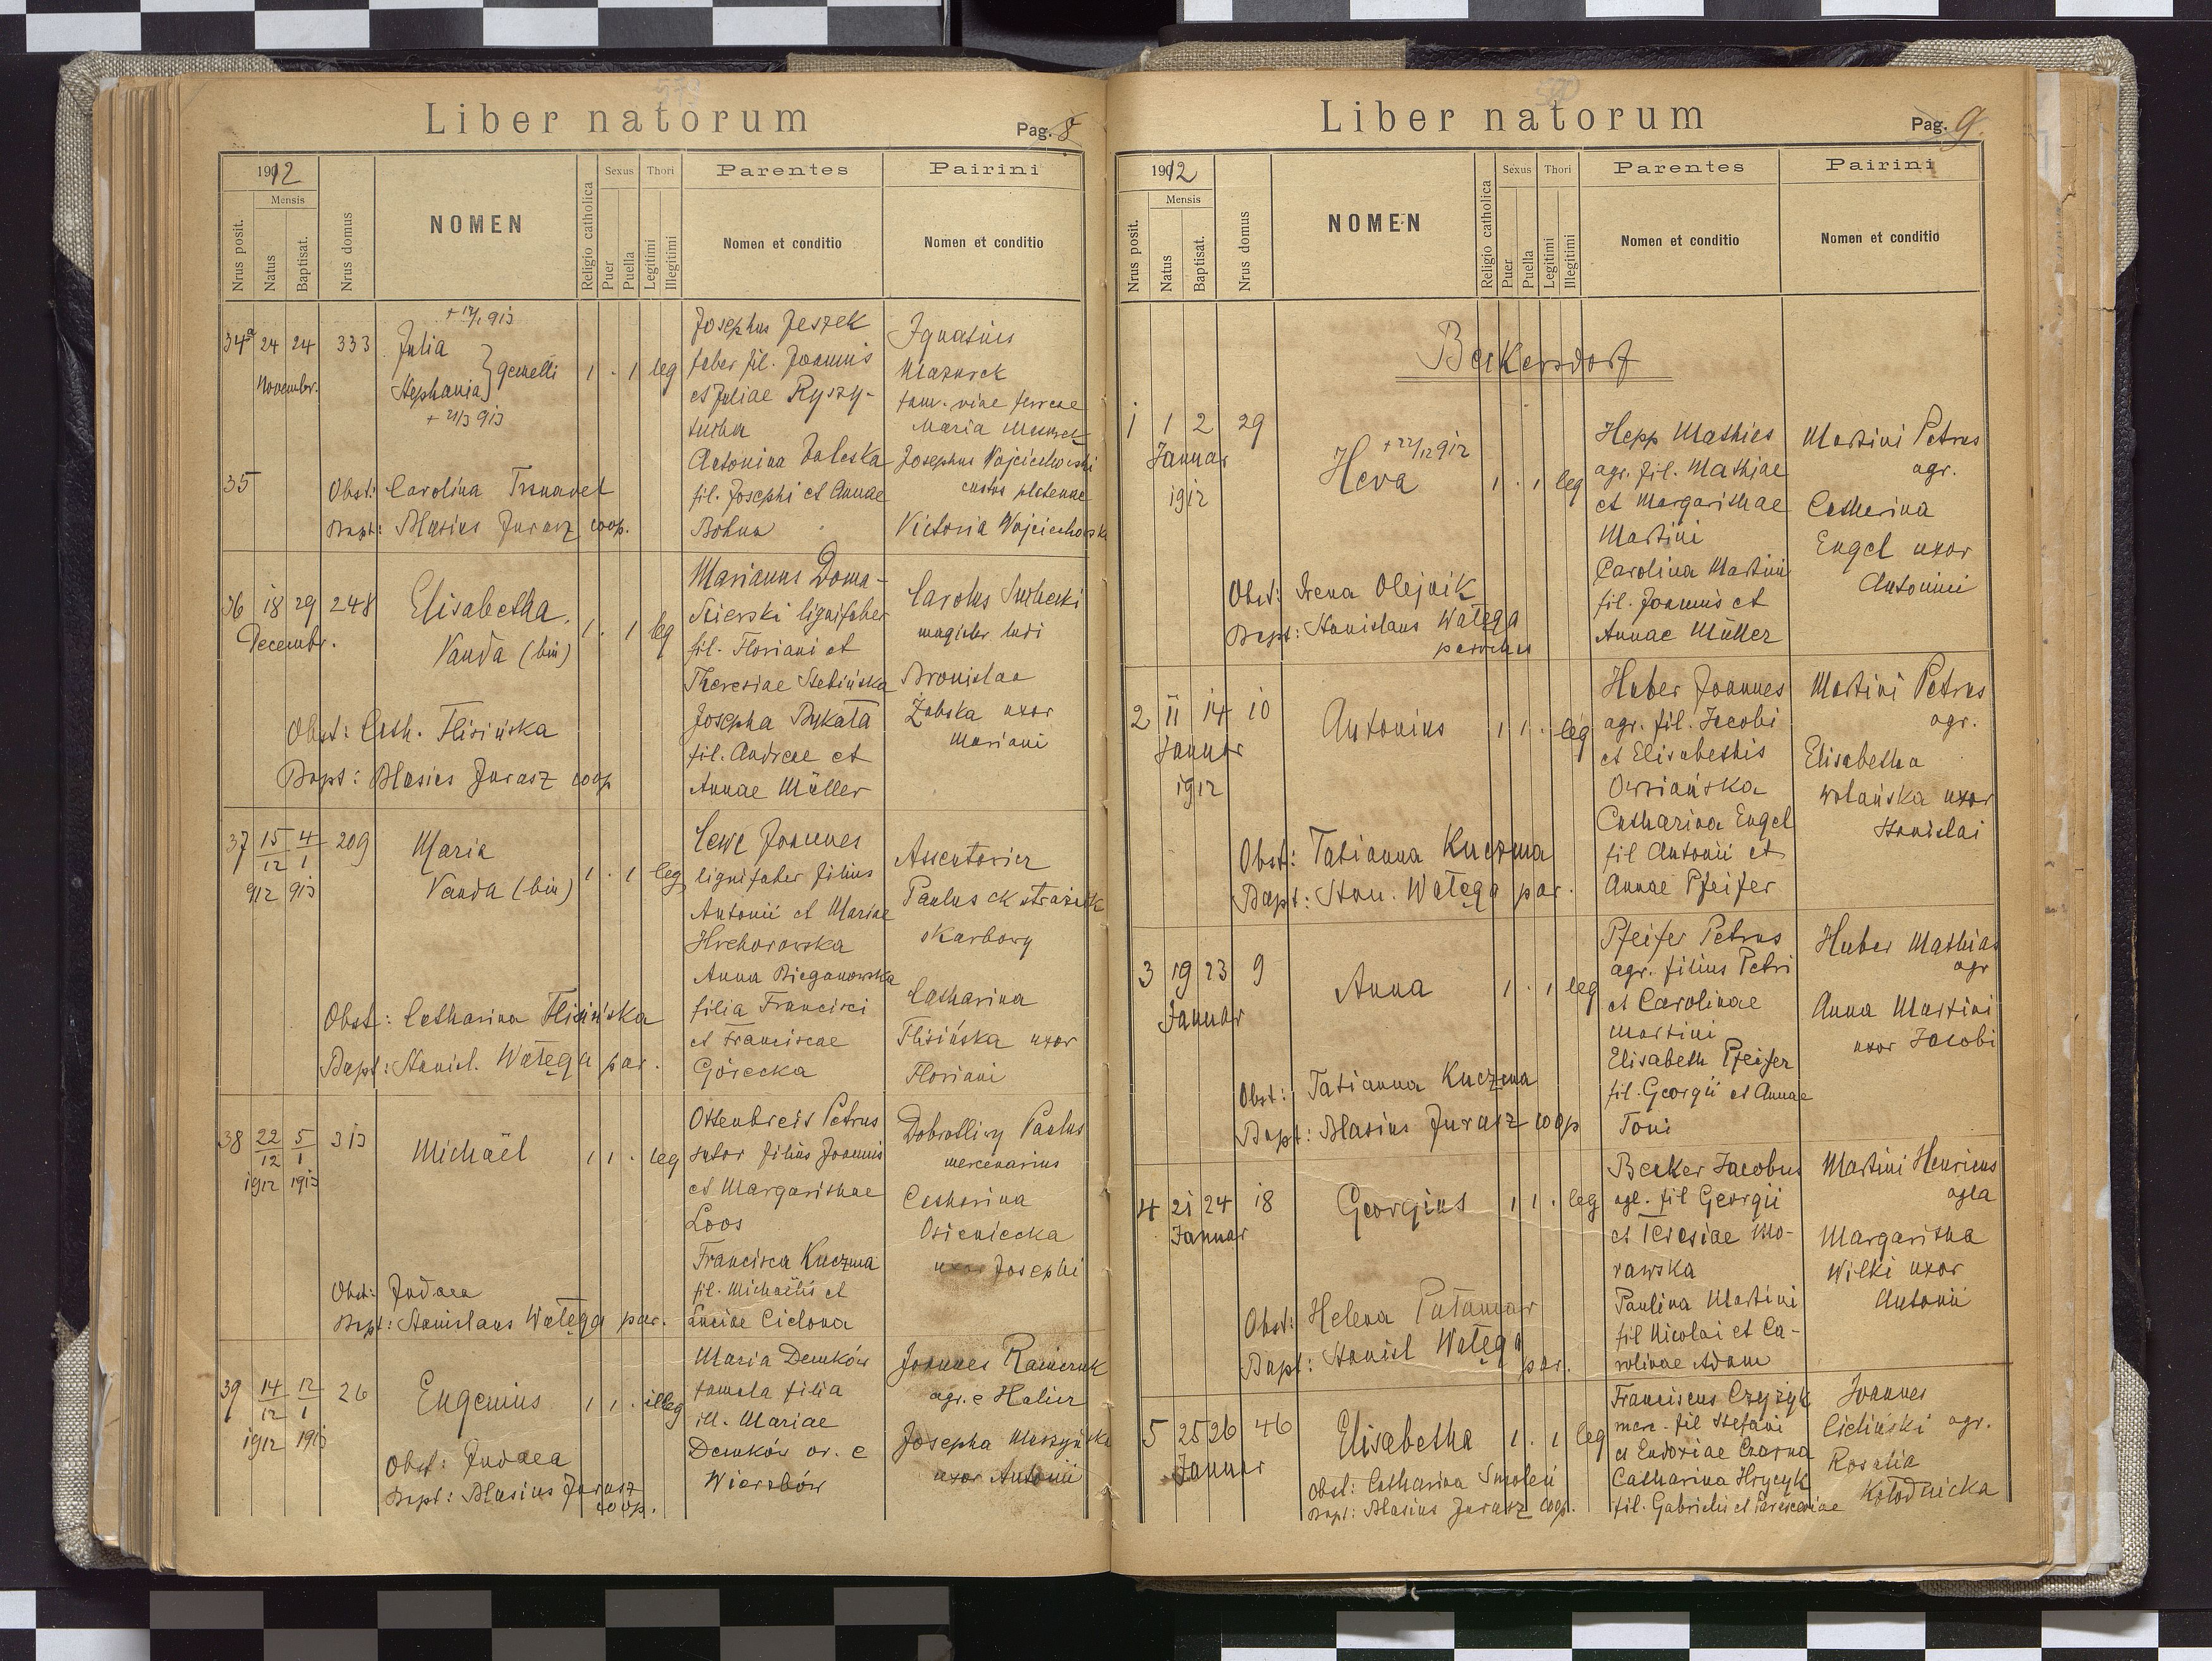 Liber natorum
Pag. 8
1912
Mensis
Nrus posit.
Natus
Baptisat.
Nrus domus
NOMEN
Religio catholica
Sexus
Puer
Puella
Thori
Legitimi
Illegitimi
Parentes
Nomen et conditio
Pairini
Nomen et conditio
34a 24 24 333
Novembr.
Julia
Stephania
gemelli
+ 21/3 913
1 . 1 leg
Josephus Jeszek
faber fil. Joannis
et Juliae Ryszy-
Antonina Daleska
fil. Josephi et Annae
Bohna
Ignatius
Mazurek
fam. viae ferreae
Maria Mazurek
Josephus Wojciechowski
custos plateae
Victoria Wojciechowska
35
Obst: Carolina
Bapt: Blasius Jurasz coop.
36 18 29 248
Decembr.
Elisabetha
Vanda (bin)
1 . 1 leg
Marianus Doma-
lignifaber
fil. Floriani et
Theresiae
Josepha Bykata
fil. Andreae et
Annae Müller
Carolus
magister ludi
Bronislaa
Żabska uxor
Mariani
Obst: Cath. Flisińska
Bapt: Blasius Jurasz coop
37 15/12 4/1 209
912 913
Maria
Vanda (bin)
1 . 1 leg
Lewe Joannes
lignifaber filius
Antonii et Mariae
Hrehorowska
Anna Bieganowska
filia Francisci
et Franciscae
Górecka
Assentorier
Paulus
skarbowy
Catharina
Flisińska uxor
Floriani
Obst: Catharina Flisińska
Bapt: Stanisl. Watęga par.
38 22/12 5/1 313
1912 1913
Michaël
1 1 . leg
Ottenbreit Petrus
sutor filius Joannis
et Margarithae
Loos
Francisca Kuczma
fil. Michaëlis et
Luciae Cielona
Paulus
mercenarius
Catharina
Osieniecka
uxor Josephi
Obst: Judaea
Bapt: Stanislaus Watęga par.
39 14/12 12/1 26
1912 1913
Eugenius
1 1 . illeg
Maria Demków
famula filia
ill. Mariae
Demków or. e
Wierzbów
Joannes
agr. e Halicz
Josepha
uxor Antonii
Obst: Judaea
Bapt: Blasius Jurasz
coop.
Liber natorum
Pag. 9.
1912
Mensis
Nrus posit.
Natus
Baptisat.
Nrus domus
NOMEN
Religio catholica
Sexus
Puer
Puella
Thori
Legitimi
Illegitimi
Parentes
Nomen et conditio
Pairini
Nomen et conditio
Beckersdorf
1 1 2 29
Januar
1912
+ 22/12 912
Heva
1 . 1 leg
Hepp Mathias
agr. fil. Mathiae
et Margarithae
Martini
Carolina Martini
fil. Joannis et
Annae Müller
Martini Petrus
agr.
Catherina
Engel uxor
Antonini
Obst: Irena Olejnik
Bapt: Stanislaus Watęga
parochus
2 11 14 10
Januar
1912
Antonius
1 1 . leg
Huber Joannes
agr. fil. Jacobi
et Elisabethis
Owsiańska
Catharina Engel
fil Antonii et
Annae Pfeifer
Martini Petrus
agr.
Elisabetha
Wolańska uxor
Stanislai
Obst: Tatianna Kuczma
Bapt: Stan. Watęga par.
3 19 23 9
Januar
Anna
1 . 1 leg
Pfeifer Petrus
agr. filius Petri
et Carolinae
Martini
Elisabeth Pfeifer
fil. Georgii et Annae
Toni
Huber Mathias
agr
Anna Martini
uxor Jacobi
Obst: Tatianna Kuczma
Bapt: Blasius Jurasz coop
4 21 24 18
Januar
Georgius
1 1 . leg
Becker Jacobus
agl. fil Georgii
et Teresiae Mo-
rawska
Paulina Martini
fil Nicolai et Ca-
rolinae Adam
Martini Henricus
agla
Margaritha
Wilki uxor
Antonii
Obst: Helena Patamar
Bapt: Stanisl Watęga
par.
5 25 26 46
Januar
Elisabetha
1 . 1 leg
Franciscus Czyżyk
merc. fil Stefani
et Eudoxiae Czarna
Catharina Hrycyk
fil. Gabrielis et Parascevae
Joannes
Cieliński agr.
Rosalia
Kołodnicka
Obst: Catharina Smoleń
Bapt: Blasius Jurasz coop.